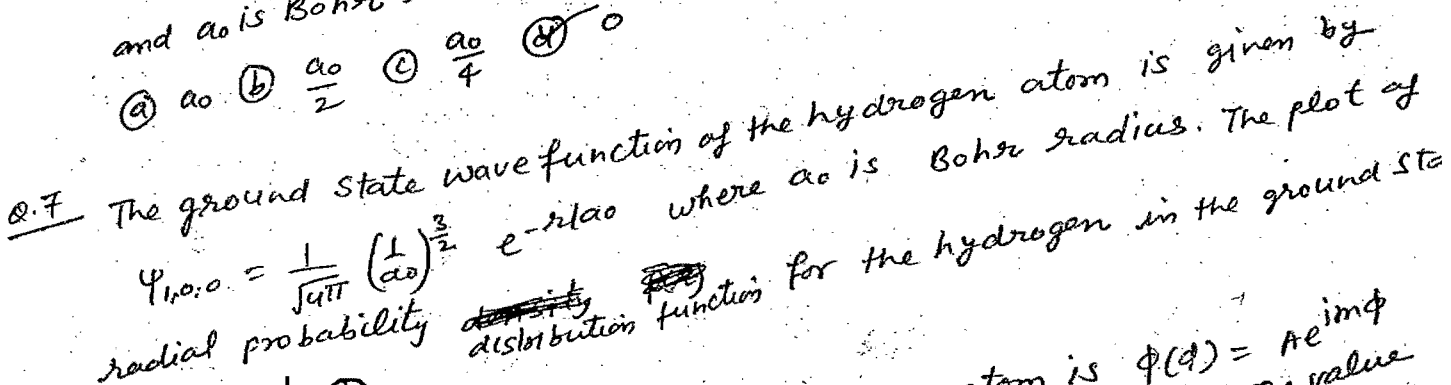 and a₀ is Bohr
ⓐ a₀ ⓑ a₀/2 ⓒ a₀/4 ⓓ 0
Q.7 The ground state wave function of the hydrogen atom is given by
Ψ₁,₀,₀ = 1/√4π (1/a₀)^3/2 e^-r/a₀ where a₀ is Bohr radius. The plot of
radial probability distribution function for the hydrogen in the ground sta
is φ(φ) = Ae^imφ
value